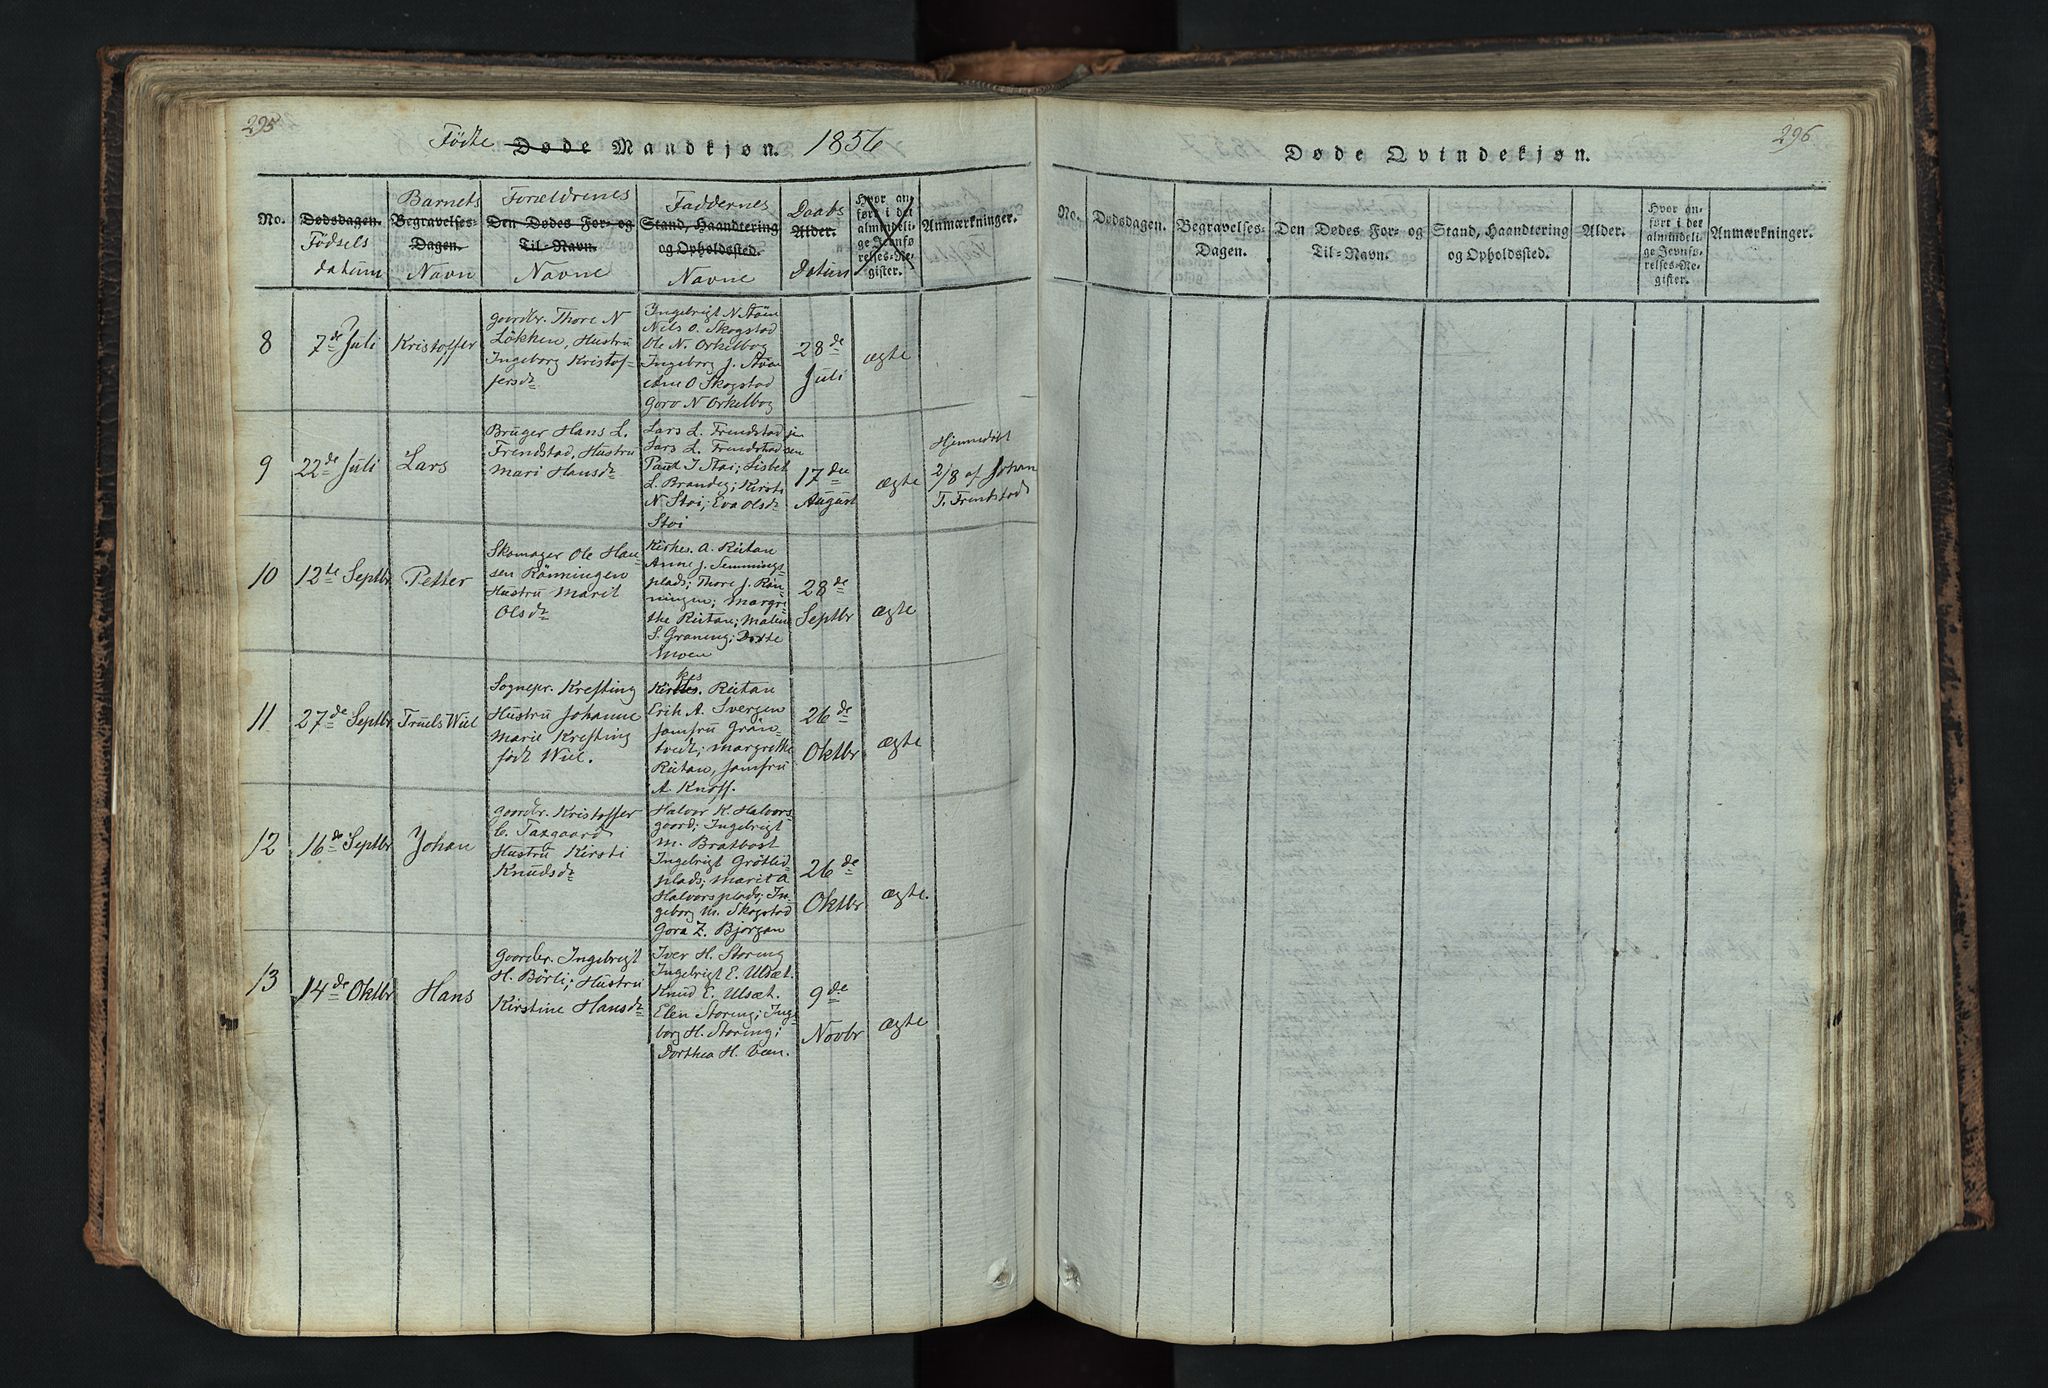 295
Födte Døde Mandkjøn. 1856
No.
Dødsdagen.
Födsels
datum
Barnets
Begravelses-
Dagen.
Navn
Forældrenes
Den Dødes For- og
Til-Navn.
Navne
Faddernes
Stand, Haandtering
og Opholdssted.
Navne
Daabs
Alder.
Datum
Hvor an-
ført i det
almindeli-
ge Jevnfø-
relses-Re-
gister.
Anmærkninger.
8
7de Juli
Kristoffer
Gaardbr. Thore N
Lökken, Hustru
Ingeborg Kristof-
fersdr
Ingebrigt N Stöen
Nils O. Skogstad
Ole N. Orkelbog
Ingeborg J. Stöen
Ane O Skogstad
Goro N Orkelbog
28de
Juli
ægte
9
22de Juli
Lars
Bruger Hans L.
Frendstad, Hustru
Mari Hansdr
Lars L. Frendstad jun
Lars L. Frendstad sen
Paul J Stai; Lisbet
L. Brandeg; Kirsti
N Stoi; Eva Olsdr
Stoi
17de
August
ægte
Hjemmedöbt
2/8 af Johan
T. Frendstad
10
12te Septbr
Petter
Skomager Ole Han-
sen Rönningen
Hustru Marit
Olsdr
Kirkes. A. Rütan
Anne J. Semmings-
plads; Thore J. Rön-
ningen; Margre-
the Rütan; Malene
S. Graneng; Dorte
Moen
28de
Septbr
ægte
11
27de Septbr
Truels Wiel
Sognepr. Krefting
Hustru Johanne
Marie Krefting
födt Wiel.
Kirkes. Rütan
Erik A. Svergen
Jomfru Grön-
tvedt; Margrethe
Rütan, Jomfru
A Knoff.
26de
Oktbr
ægte
12
16de Septbr
Johan
Gaardbr. Kristoffer
C. Taxgaard
Hustru Kirsti
Knudsdr
Halvor K. Halvors-
gaard; Ingebrigt
M. Bratbost
Ingebrigt Grötlid-
plads; Marit A
Halvorsplads; In-
geborg M. Skogstad
Gora Z. Bjorgan
26de
Oktbr
ægte.
13
14de Oktbr
Hans
Gaardbr. Ingebrigt
H. Börli; Hustru
Kirstine Hansdr
Iver H. Storeng
Ingebrigt E. Ulsæt.
Knud E. Ulsæt.
Elen Storeng; Inge-
borg H. Storeng;
Dorthea H. Veen.
9de
Novbr
ægte
296
Døde Qvindekjøn.
No.
Dødsdagen.
Begravelses-
Dagen.
Den Dødes For- og
Til-Navn.
Stand, Haandtering
og Opholdssted.
Alder.
Hvor an-
ført i det
almindeli-
ge Jevnfø-
relses-Re-
gister.
Anmærkninger.